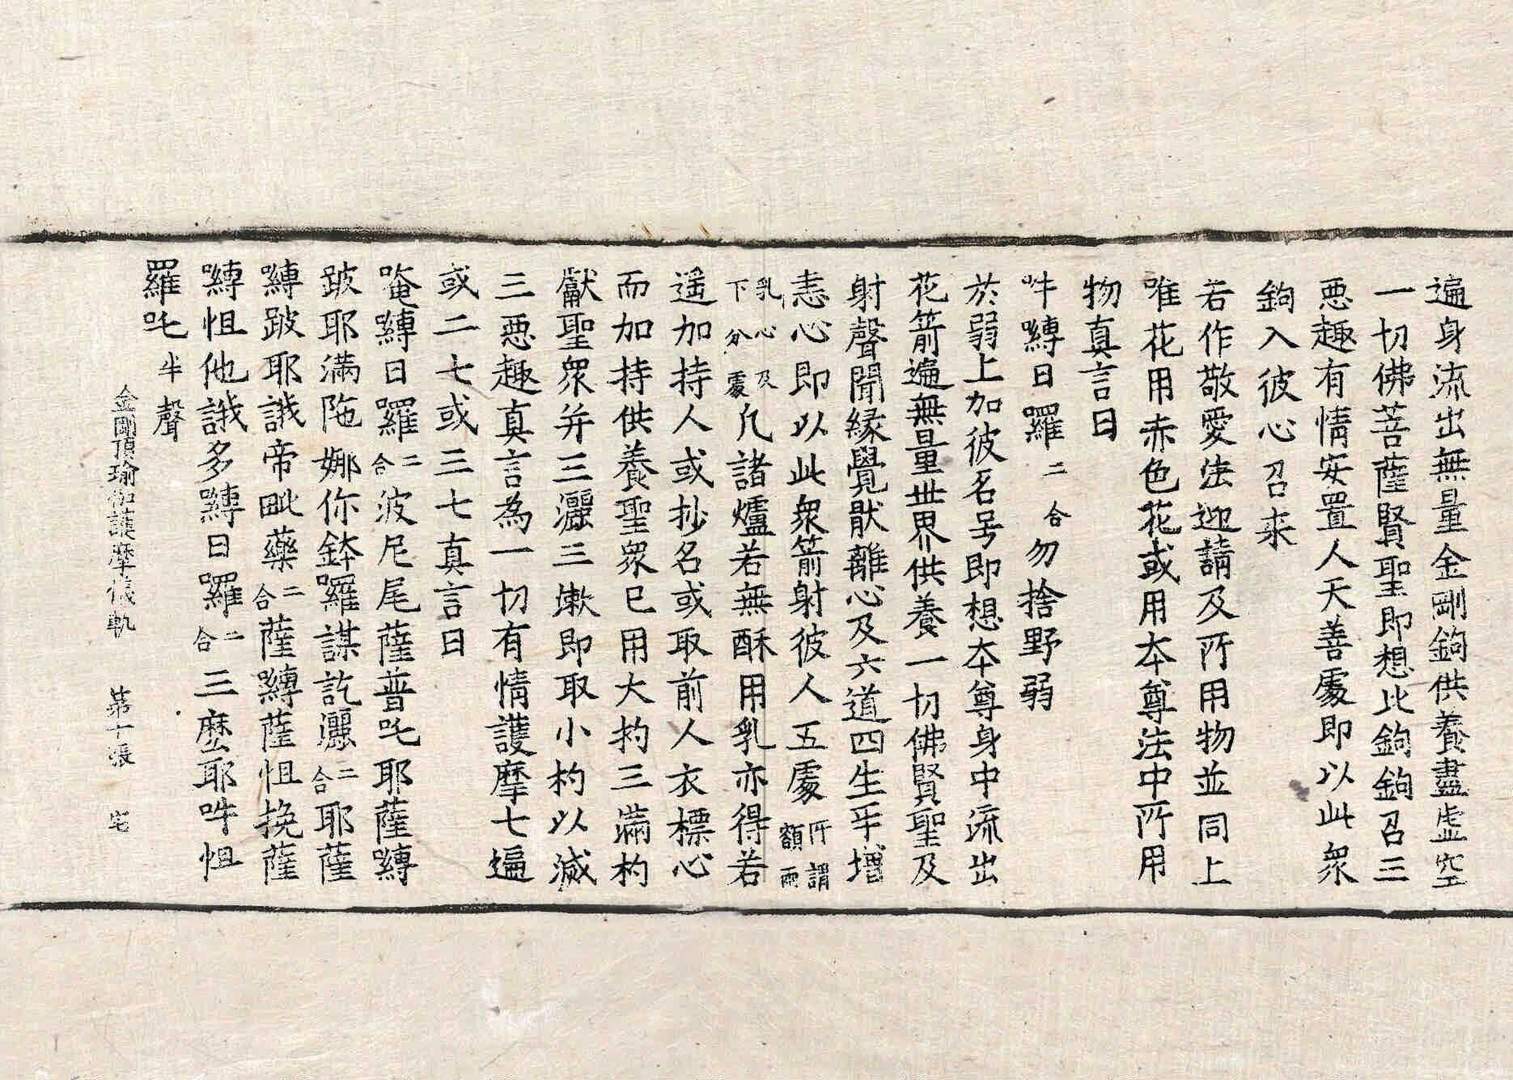 遍身流出無量金剛鉤供養盡虛空
一切佛菩薩賢聖即想此鉤鉤召三
惡趣有情安置人天善處即以此眾
鉤入彼心召來
若作敬愛法迎請及所用物並同上
唯花用赤色花或用本尊法中所用
物真言曰
吽嚩日囉二合勿捨野弱
於弱上加彼名号即想本尊身中流出
花箭遍無量世界供養一切佛賢聖及
射聲聞緣覺猒離心及六道四生平增
恚心即以此眾箭射彼人五處所謂額兩
乳心及下分處凡諸爐若無酥用乳亦得若
遥加持人或抄名或取前人衣標心
而加持供養聖眾已用大杓三滿杓
獻聖眾并三灑三漱即取小杓以滅
三惡趣真言為一切有情護摩七遍
或二七或三七真言曰
唵嚩日囉二合波尼尾薩普吒耶薩嚩
跛耶滿陁娜你鉢囉謀訖灑二合耶薩
嚩跛耶誐帝毗藥二合薩嚩薩怛挽薩
嚩怛他誐多嚩日囉二合三麼耶吽怛
羅吒半聲
金剛頂瑜伽護摩儀軌 第十張 宅